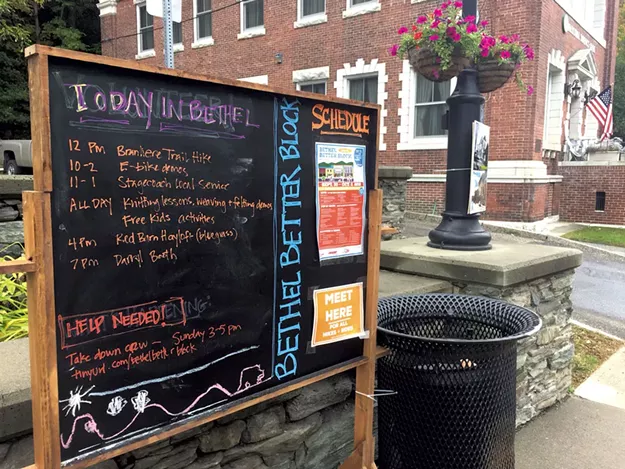 TODAY IN BETHEL
12 PM Branliere Trail Hike
10-2 E-bike demos
11-1 Stagecoach Local Service
ALL DAY Knitting lessons, weaving + felting demos,
Free Kids activities
4 pm Red Barn Hayloft (bluegrass)
7 pm Darryl
HELP NEEDED!
Take down crew — Sunday 3-5 pm
BETHEL BETTER BLOCK
SCHEDULE
BETHEL BETTER BLOCK
MEET
HERE
FOR ALL
HIKES + BIKES